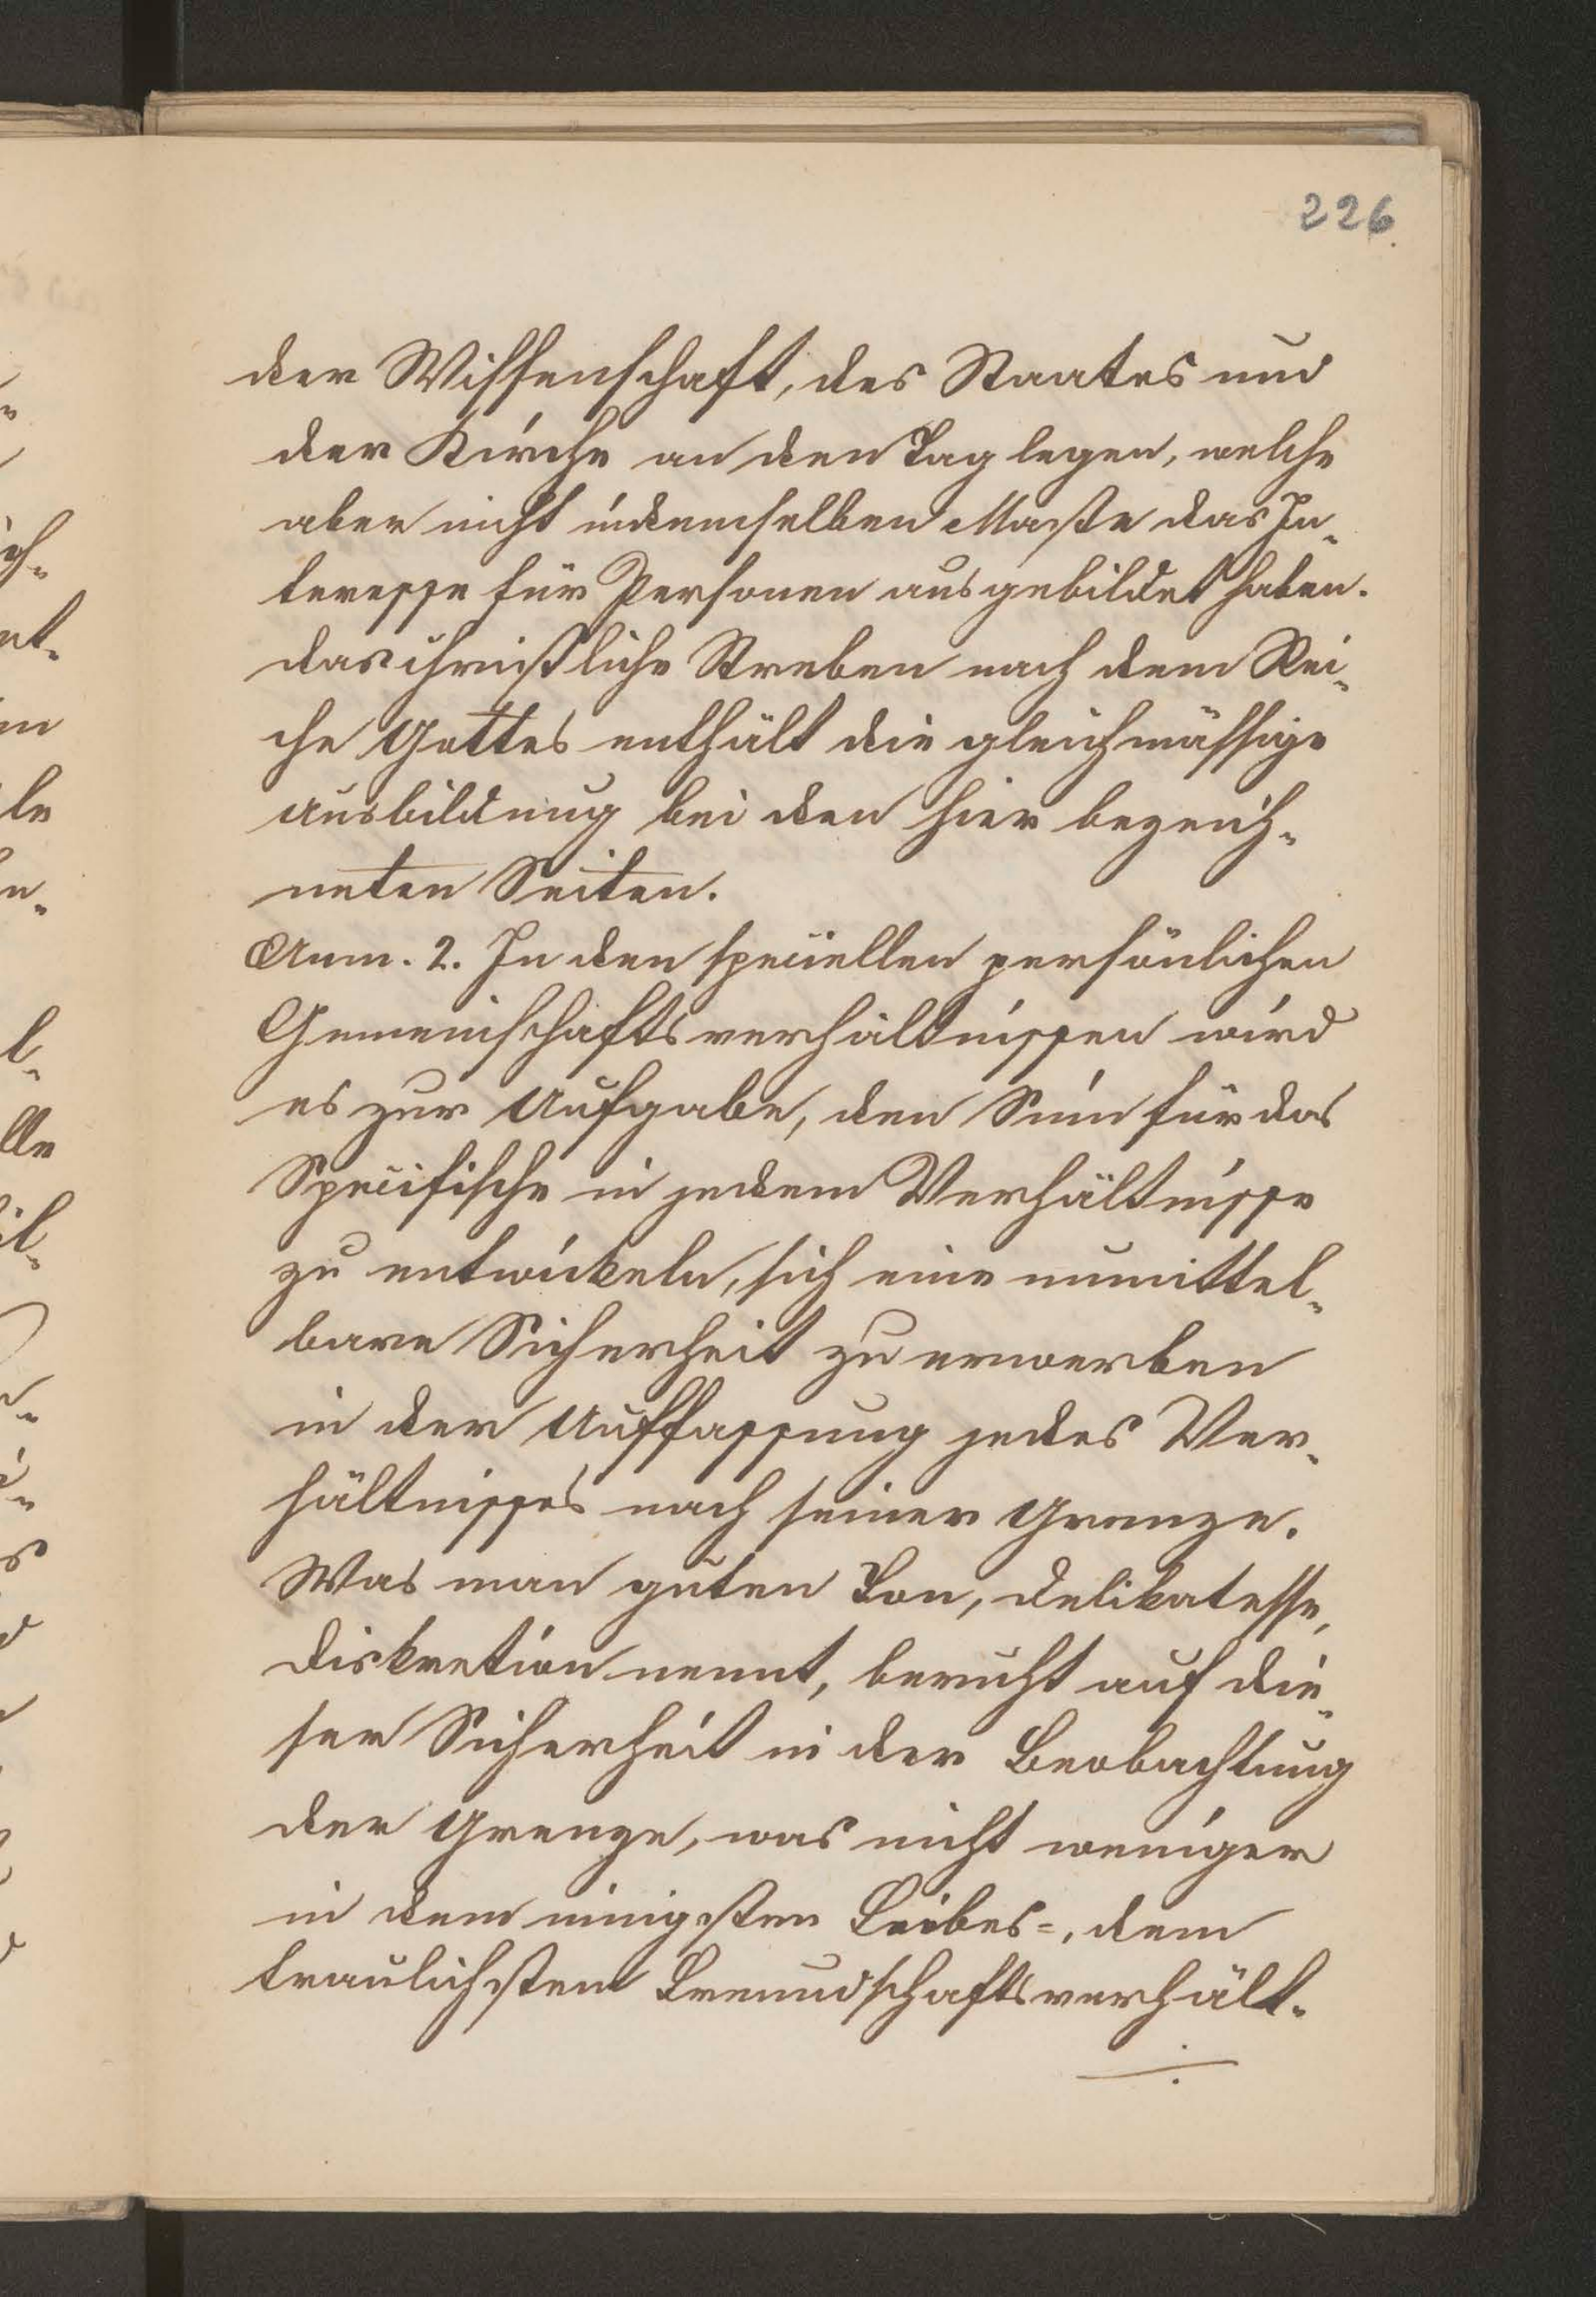 226.
der Wissenschaft, des Staates und
der Kirche an den Tag legen, welche
aber nicht in demselben Maße das In-
teresse für Personen ausgebildet haben.
das christliche Streben nach dem Rei-
che Gottes enthält die gleichmässige
Ausbildung bei den hier bezeich-
neten Seiten.
Anm. 2. In den speciellen persönlichen
Gemeinschaftsverhältnissen wird
es zur Aufgabe, den Sinn für das
Specifische in jedem Verhältnisse
zu entwickeln, sich eine unmittel-
bare Sicherheit zu erwerben
in der Auffassung jedes Ver-
hältnisses nach seiner Grenze.
Was man guten Ton, Delikatesse,
Diskretion nennt, beruht auf die-
ser Sicherheit in der Beobachtung
der Grenze, was nicht weniger
in dem innigsten Liebes-, dem
traulichsten Freundschaftsverhält-